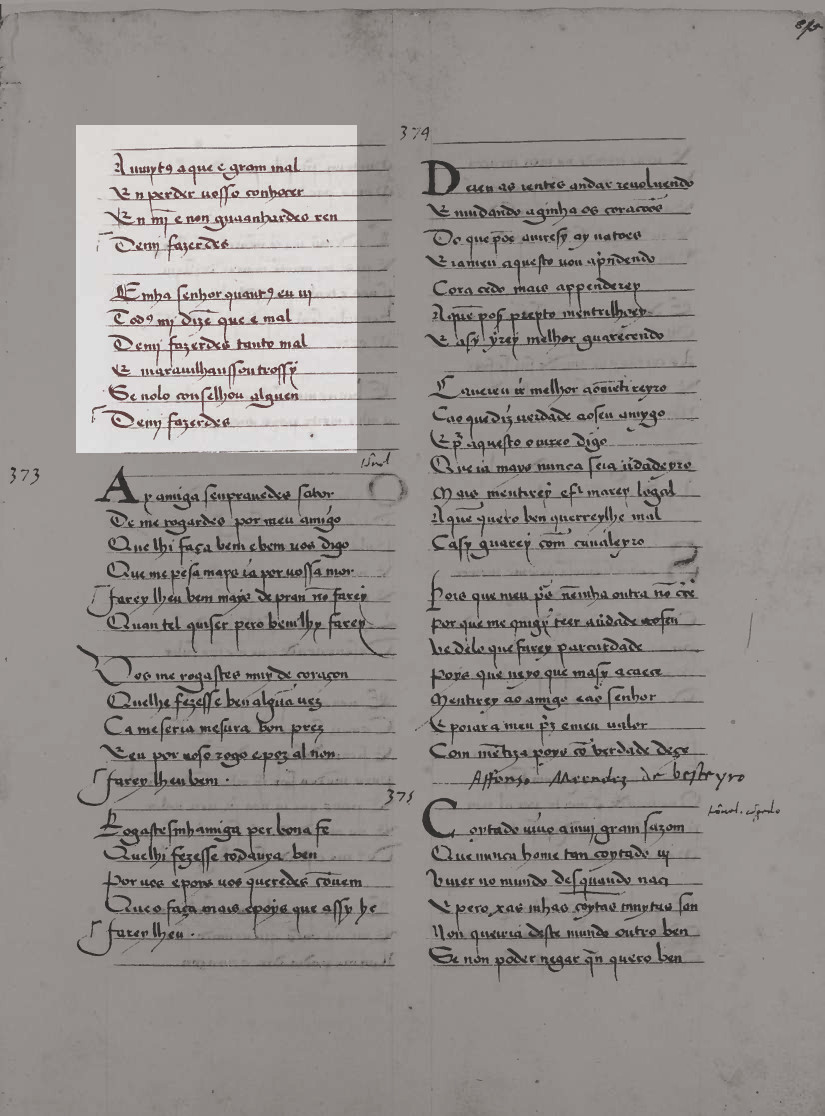 A muytꝯ aque e gram mal
En perder uosso conhocer
En mĩ e non guaanhardes ren
Demj fazerdes
E mha senhor quantꝯ eu uj
Todꝯ mj dizẽ que e mal
Demj fazerdes tanto mal
E marauilhanssoutrossy
Se uolo conselhou alguen
Demj fazerdes
373
Ay amiga senpraueedes sabor
De me rogardes por meu amigo
Que lhi faça bem e bem uos digo
Que me pesa mays ia por uossa mor
farey lheu bem mays de pran nõ farey
Quan tel quiser pero bem lhy farey
Vos me rogastes muy de coraçon
Quelhe fezesse ben algũa uez
Ca me seria mesura bon prez
E eu por uoso rogo e poz al non
farey lheu bem
Rogastesmhamiga per bona fe
Quelhi fezesse todauya ben
Por uos e poys uos queredes cõuem
Queo faça mais epoys que assy he
farey lheu
374
Deuen as ientes andar reuoluendo
E mudando aginha os coraçoẽs
Do que põe auiresy ay uatoes
E iameu aquesto uou aprẽdendo
Cora cedo mais apprenderey
A quẽ pos preyto mentrilhoey
E assy yrey melhor guarecendo
Ca uereu ir melhor aomẽtireyro
Cao que diz uerdade aoseu amygo
E p aquesto o iureo digo
Que ia mays nunca seia uerdadeyro
Mays mentirey e marey logal
A que quero ben querreylhe mal
Casy guarey com caualeyro
Pois que meu pz nẽ mha outra nõ cre
Por que me quigy teer auerdade
Vedelo que farey par caridade
Poys que ueyo que massy acaece
Mentirey ao amigo e ao senhor
E poiara meu pz e meu ualor
Com mẽtira poys cõ verdade deçe
Affonso Meendez de besteyro
375
Coytado uiuo a muj gram sazom
Que nunca home tan coytado uj
Viuer no mundo desquando naci
E pero xas mhas coytas muytas son
Non queiria deste mundo outro ben
Se non poder negar qn quero ben